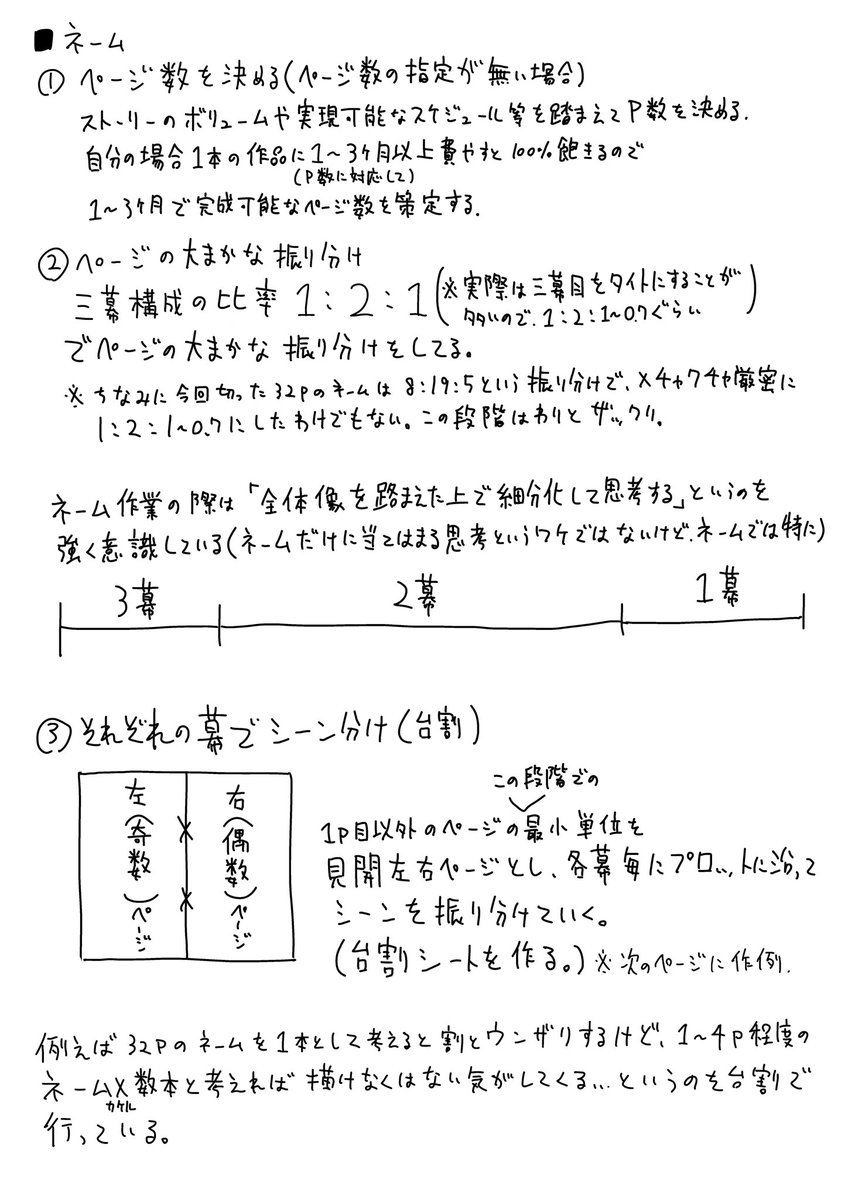 ■ネーム
① ページ数を決める(ページ数の指定が無い場合)
ストーリーのボリュームや実現可能なスケジュール等を踏まえてP数を決める.
自分の場合1本の作品に1〜3ヶ月以上費やすと100%飽きるので
(P数に対応して)
1〜3ヶ月で完成可能なページ数を策定する.
② ページの大まかな振り分け
三幕構成の比率 1:2:1(※実際は三幕目をタイトにすることが
多いので.1:2:1〜0.7ぐらい)
でページの大まかな振り分けをしてる。
※ちなみに今回切った32Pのネームは8:19:5という振り分けで、メチャクチャ厳密に
1:2:1〜0.7にしたわけでもない。この段階はわりとザックリ.
ネーム作業の際は「全体像を踏まえた上で細分化して思考する」というのを
強く意識している(ネームだけに当てはまる思考というワケではないけど.ネームでは特に)
3幕 2幕 1幕
③ それぞれの幕でシーン分け(台割)
左(奇数)ページ
右(偶数)ページ
この段階での
1P目以外のページの最小単位を
見開左右ページとし、各幕毎にプロットに沿って
シーンを振り分けていく。
(台割シートを作る。)※次のページに作例.
例えば32Pのネームを1本として考えると割とウンザリするけど、1〜4P程度の
ネーム×数本と考えれば描けなくはない気がしてくる…というのを台割で
カケル
行っている。